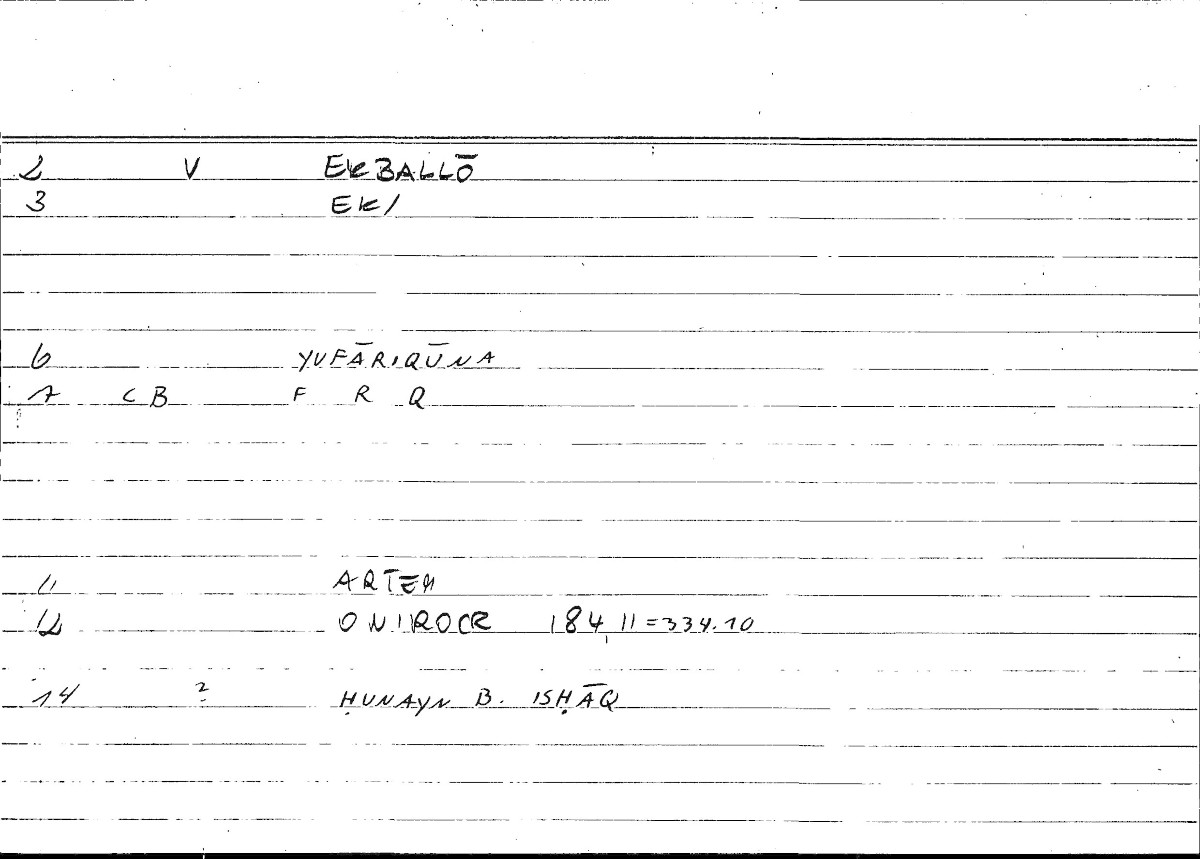 2 V EKBALLŌ
3 EK/
6 YUFĀRIQŪNA
7 CB F R Q
11 ARTEM
12 ONIROCR 184,11=334.10
14 ? ḤUNAYN B. ISḤĀQ